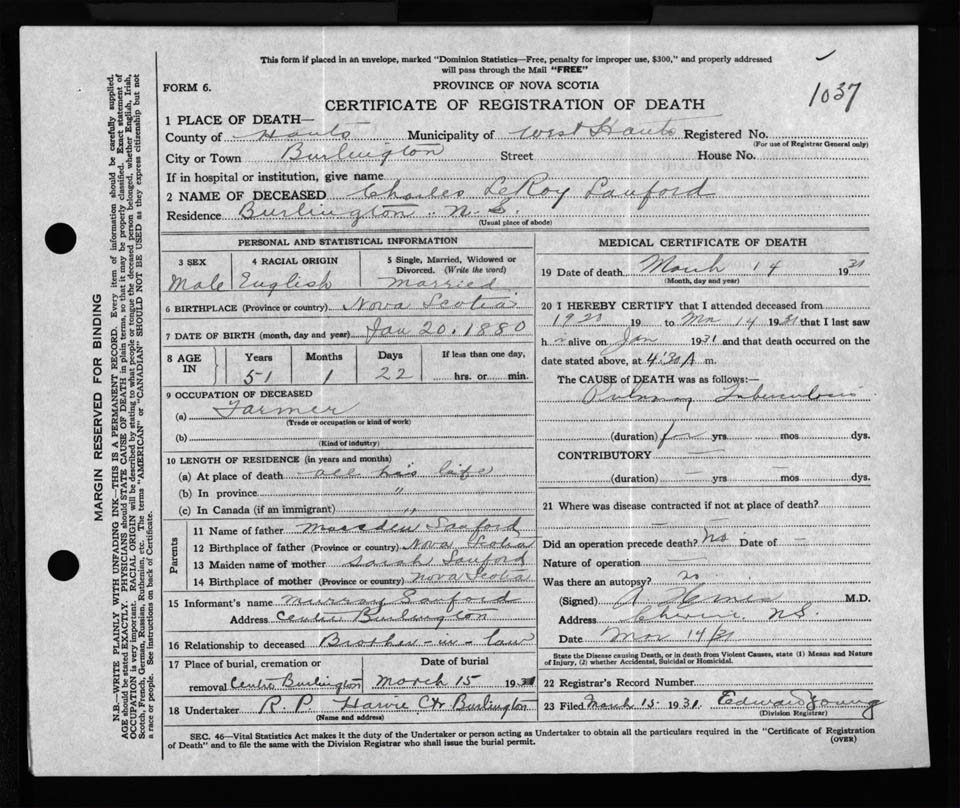 This form if placed in an envelope, marked "Dominion Statistics—Free, penalty for improper use, $300," and properly addressed
will pass through the Mail "FREE"
FORM 6.
PROVINCE OF NOVA SCOTIA
1037
CERTIFICATE OF REGISTRATION OF DEATH
1 PLACE OF DEATH—
County of Hants Municipality of West Hants Registered No.
(For use of Registrar General only)
City or Town Burlington Street House No.
If in hospital or institution, give name
2 NAME OF DECEASED Charles LeRoy Sanford
Residence Burlington N.S.
(Usual place of abode)
PERSONAL AND STATISTICAL INFORMATION
3 SEX 4 RACIAL ORIGIN 5 Single, Married, Widowed or Divorced. (Write the word)
Male English Married
6 BIRTHPLACE (Province or country) Nova Scotia
7 DATE OF BIRTH (month, day and year) Jan 20. 1880
8 AGE IN Years Months Days If less than one day,
51 1 22 hrs. or min.
9 OCCUPATION OF DECEASED
(a) Farmer
(Trade or occupation or kind of work)
(b)
(Kind of industry)
10 LENGTH OF RESIDENCE (in years and months)
(a) At place of death all his life
(b) In province "
(c) In Canada (if an immigrant) "
Parents
11 Name of father Sanford
12 Birthplace of father (Province or country) Nova Scotia
13 Maiden name of mother Sarah Sanford
14 Birthplace of mother (Province or country) Nova Scotia
15 Informant's name Murray Sanford
Address Centre Burlington
16 Relationship to deceased Brother-in-law
17 Place of burial, cremation or Date of burial
removal Centre Burlington March 15 1931
18 Undertaker R. P. Harvie Ctr Burlington
(Name and address)
MEDICAL CERTIFICATE OF DEATH
19 Date of death March 14 1931
(Month, day and year)
20 I HEREBY CERTIFY that I attended deceased from
19 to Mr 14 1931 that I last saw
h alive on Jan 1931 and that death occurred on the
date stated above, at 4:30 A m.
The CAUSE of DEATH was as follows:—
Pulmonary Tuberculosis
(duration) yrs mos dys.
CONTRIBUTORY —
(duration) yrs mos dys.
21 Where was disease contracted if not at place of death?
Did an operation precede death? No Date of —
Nature of operation —
Was there an autopsy? no
(Signed) M.D.
Address N.S.
Date Mar 14/31
State the Disease causing Death, or in death from Violent Causes, state (1) Means and Nature
of Injury, (2) whether Accidental, Suicidal or Homicidal.
22 Registrar's Record Number
23 Filed March 15. 1931. Edward Young
(Division Registrar)
SEC. 46—Vital Statistics Act makes it the duty of the Undertaker or person acting as Undertaker to obtain all the particulars required in the "Certificate of Registration
of Death" and to file the same with the Division Registrar who shall issue the burial permit.
(OVER)
MARGIN RESERVED FOR BINDING
N.B.—WRITE PLAINLY WITH UNFADING INK—THIS IS A PERMANENT RECORD. Every item of information should be carefully supplied.
AGE should be stated EXACTLY. PHYSICIANS should STATE CAUSE OF DEATH in plain terms, so that it may be properly classified. Exact statement of
OCCUPATION is very important. RACIAL ORIGIN will be described by stating to what people or tongue the deceased person belonged, whether English, Irish,
Scotch, French, German, Russian, Ruthenian, etc. The terms "AMERICAN" or "CANADIAN" SHOULD NOT BE USED as they express citizenship but not
a race or people. See instructions on back of Certificate.